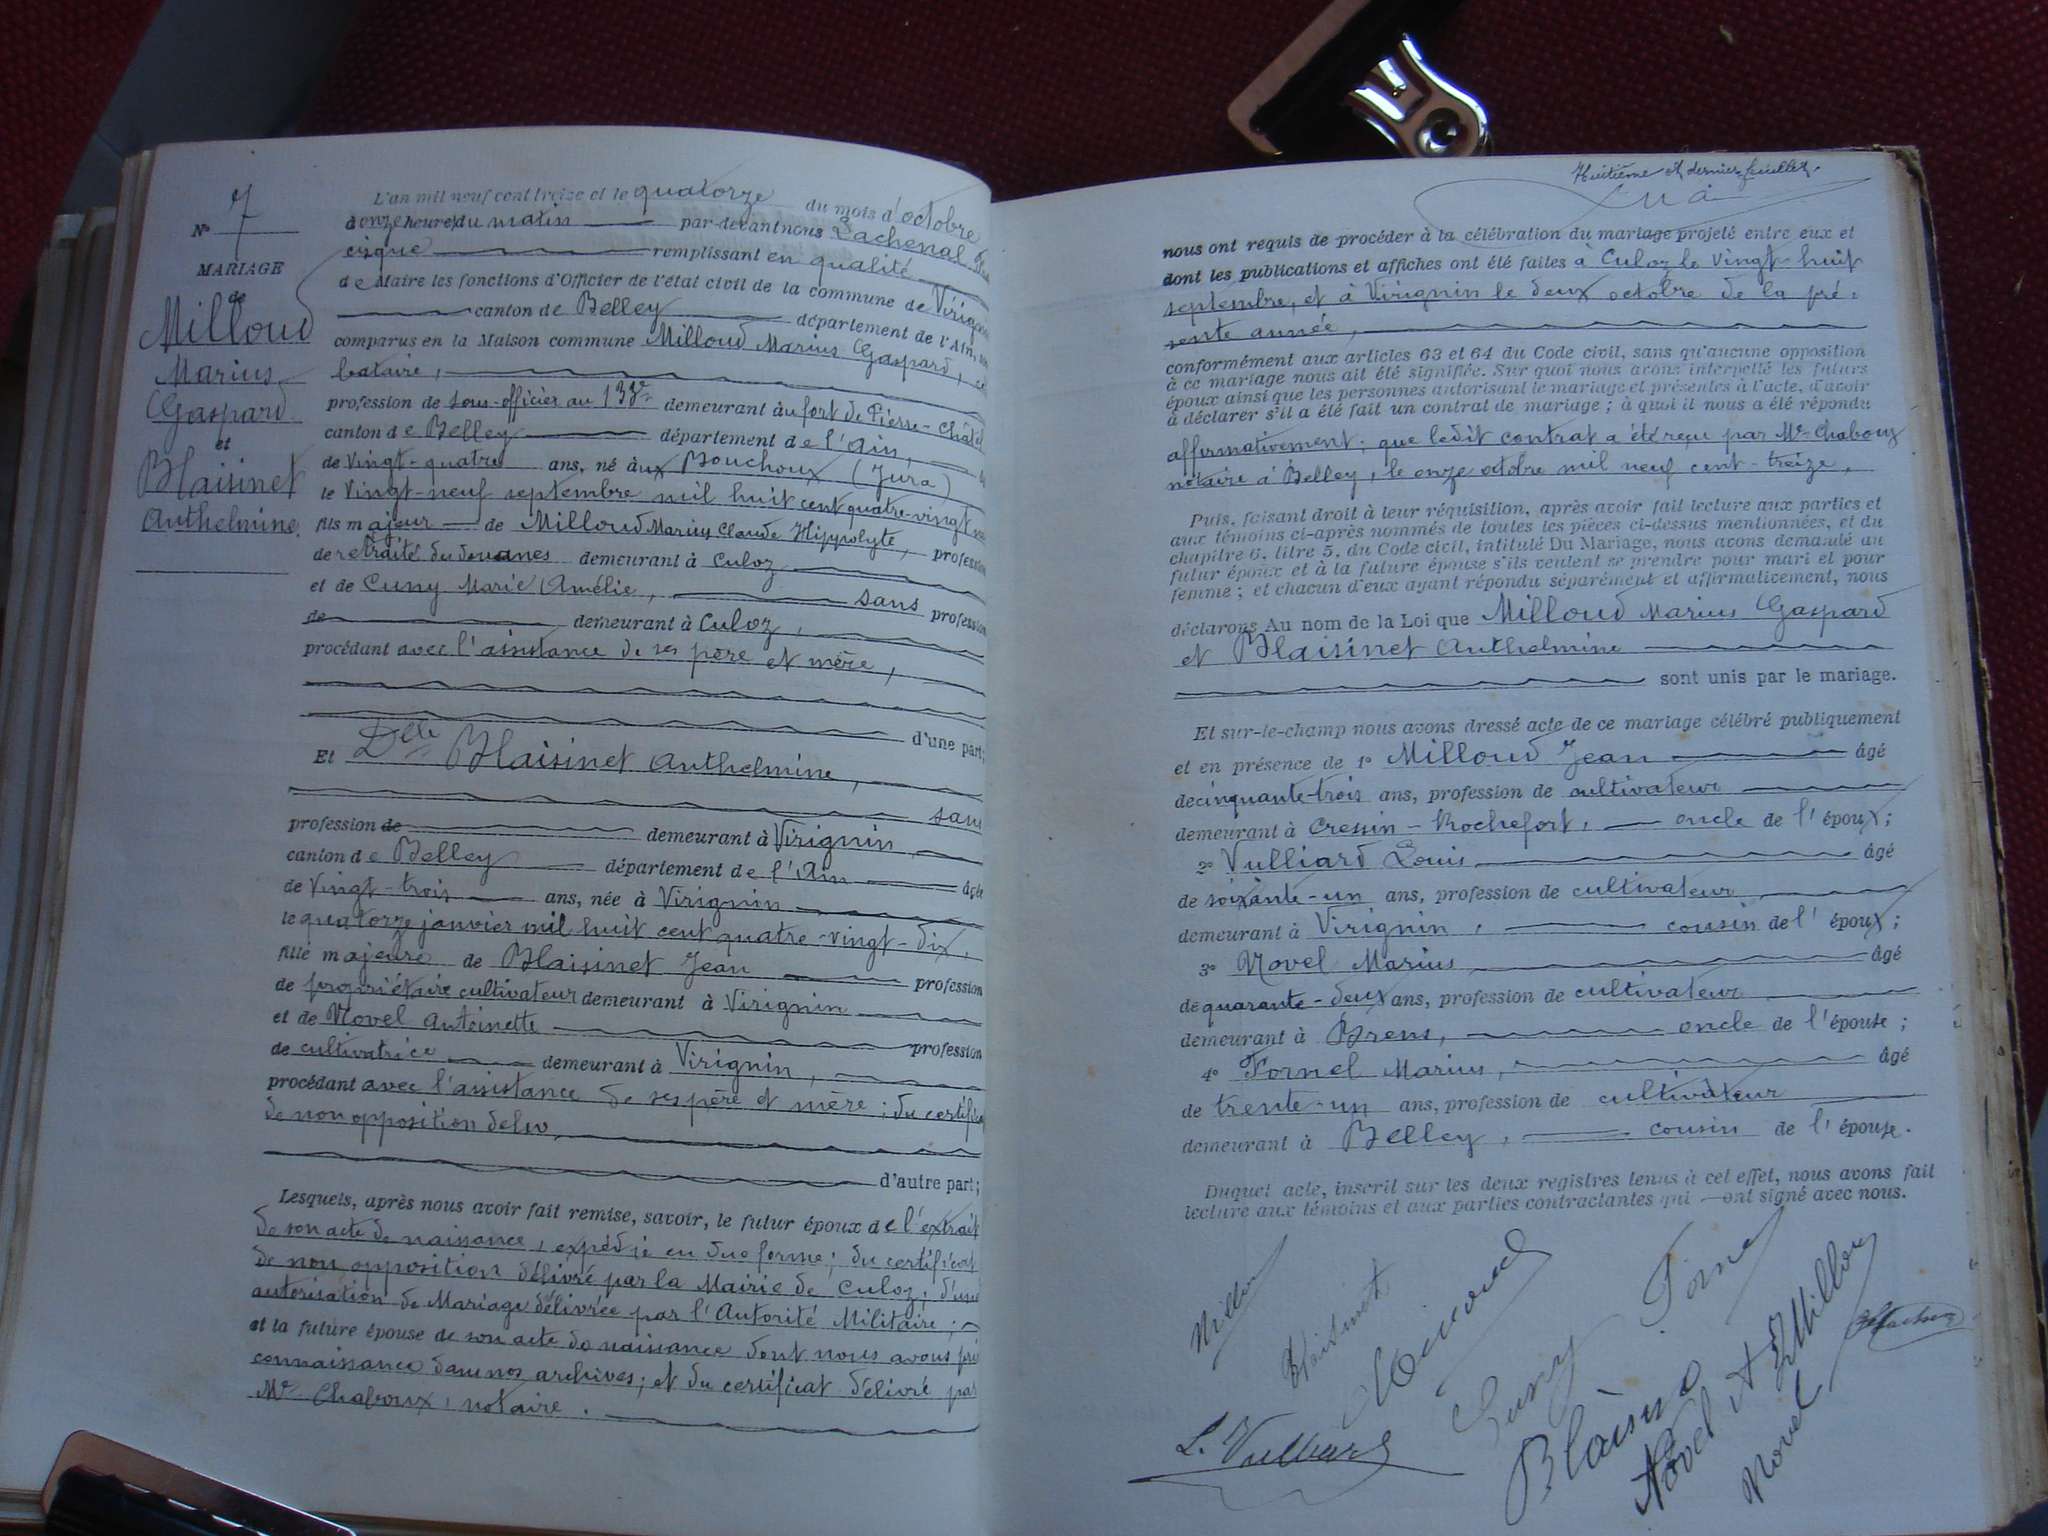 N° 7
MARIAGE
de
Milloud
Marius
Gaspard
et
Blaisinet
Anthelmine
L'an mil neuf cent treize et le quatorze du mois d'octobre
à onze heures du matin par-devant nous Lachenal
cisque remplissant en qualité
de Maire les fonctions d'Officier de l'état civil de la commune de Virignin
canton de Belley département de l'Ain,
comparus en la Maison commune Milloud Marius Gaspard, cé
bataire,
profession de sous-officier au 133e demeurant au fort de Pierre-Châtel
canton de Belley département de l'Ain,
de vingt-quatre ans, né aux Bouchoux (Jura)
le vingt-neuf septembre mil huit cent quatre-vingt
fils majeur de Milloud Marius Claude Hippolyte, profession
de retraité des douanes demeurant à Culoz
et de Cuny Marie Amélie, sans profession
de demeurant à Culoz,
procédant avec l'assistance de ses père et mère,
d'une part;
Et Delle Blaisinet Anthelmine,
sans
profession de demeurant à Virignin,
canton de Belley département de l'Ain âgée
de vingt-trois ans, née à Virignin
le quatorze janvier mil huit cent quatre-vingt-dix,
fille majeure de Blaisinet Jean profession
de propriétaire cultivateur demeurant à Virignin
et de Novel Antoinette profession
de cultivatrice demeurant à Virignin,
procédant avec l'assistance de ses père et mère; du certificat
de non opposition
d'autre part;
Lesquels, après nous avoir fait remise, savoir, le futur époux de l'extrait
de son acte de naissance, expédié en due forme; du certificat
de non opposition délivré par la Mairie de Culoz; d'une
autorisation de Mariage délivrée par l'Autorité Militaire;
et la future épouse de son acte de naissance dont nous avons pris
connaissance dans nos archives; et du certificat délivré par
Me Chaboux, notaire.
Huitième et dernier feuillet.
nous ont requis de procéder à la célébration du mariage projeté entre eux et
dont les publications et affiches ont été faites à Culoz le vingt-huit
septembre, et à Virignin le deux octobre de la pré-
sente année,
conformément aux articles 63 et 64 du Code civil, sans qu'aucune opposition
à ce mariage nous ait été signifiée. Sur quoi nous avons interpellé les futurs
époux ainsi que les personnes autorisant le mariage et présentes à l'acte, d'avoir
à déclarer s'il a été fait un contrat de mariage; à quoi il nous a été répondu
affirmativement; que ledit contrat a été reçu par Me Chaboux
notaire à Belley, le onze octobre mil neuf cent-treize,
Puis, faisant droit à leur réquisition, après avoir fait lecture aux parties et
aux témoins ci-après nommés de toutes les pièces ci-dessus mentionnées, et du
chapitre 6, titre 5, du Code civil, intitulé Du Mariage, nous avons demandé au
futur époux et à la future épouse s'ils veulent se prendre pour mari et pour
femme; et chacun d'eux ayant répondu séparément et affirmativement, nous
déclarons Au nom de la Loi que Milloud Marius Gaspard
et Blaisinet Anthelmine
sont unis par le mariage.
Et sur-le-champ nous avons dressé acte de ce mariage célébré publiquement
et en présence de 1° Milloud Jean âgé
de cinquante-trois ans, profession de cultivateur
demeurant à Cressin-Rochefort, oncle de l'époux;
2° Vulliard Louis âgé
de soixante-un ans, profession de cultivateur
demeurant à Virignin, cousin de l'époux;
3° Novel Marius âgé
de quarante-deux ans, profession de cultivateur
demeurant à Brens, oncle de l'épouse;
4° Fornel Marius, âgé
de trente-un ans, profession de cultivateur
demeurant à Belley, cousin de l'épouse.
Duquel acte, inscrit sur les deux registres tenus à cet effet, nous avons fait
lecture aux témoins et aux parties contractantes qui ont signé avec nous.
Blaisinet
Cuny
L. Vulliard
Novel A
Novel